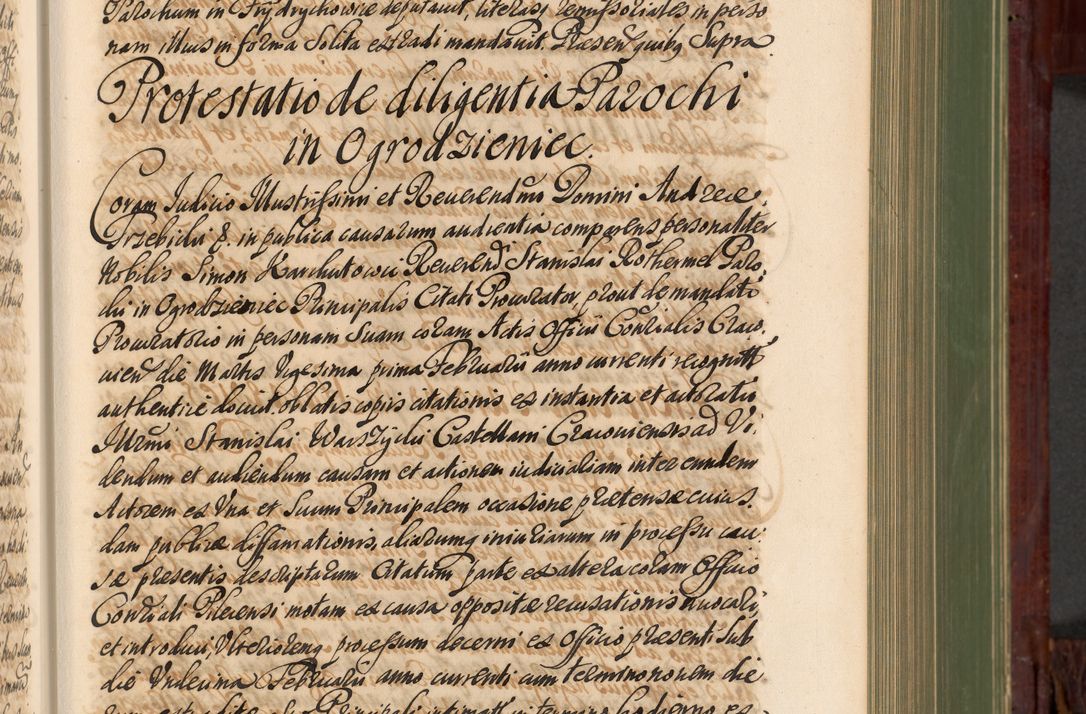 Parochum in Frydrychowice deputavit, literas, remissoriales in perso
nam illius in forma Solita extradi mandavit. Præsen quibg Supra.
Protestatio de diligentia Parochi
in Ogrodzieniec.
Coram Iudicio Illustrissimi et Reuerendmi Domini Andreæ
Trzebicki &. in publica causarum audientia comparens personaliter
Nobilis Simon Karchutowic Reuerend Stanislai Rothermel Paro,
chi in Ogrodzieniec Principalis Citati Procurator, prout de mandato
Procuratorio in personam Suam coram Actis Officii Consialis Craco,
uien die Martis Vigesima prima Februarii anno currenti recognitt
authenticè docuit. oblatis copiis citationis ex instantia et actoratu
Illrmi Stanislai Warszycki Castellani Cracouiensis ad Vi,
dendum et audiendum causam et actionem iudicialiam inter eundem
Actorem ex Vna et Suum Principalem occasione prætensæ cuius,
dam publicæ diffamationis, aliarumq iniuriarum in processu cau
sæ præsentis descriptarum Citatum parte ex altera coram Officio
Conziali Pilecensi motam ex causa oppositæ recusationis auocari,
et introduci, Vlterioremq processum decerni ex Officio præsenti Sub
die Vndecima Februarii anno currenti cum termino nonem die